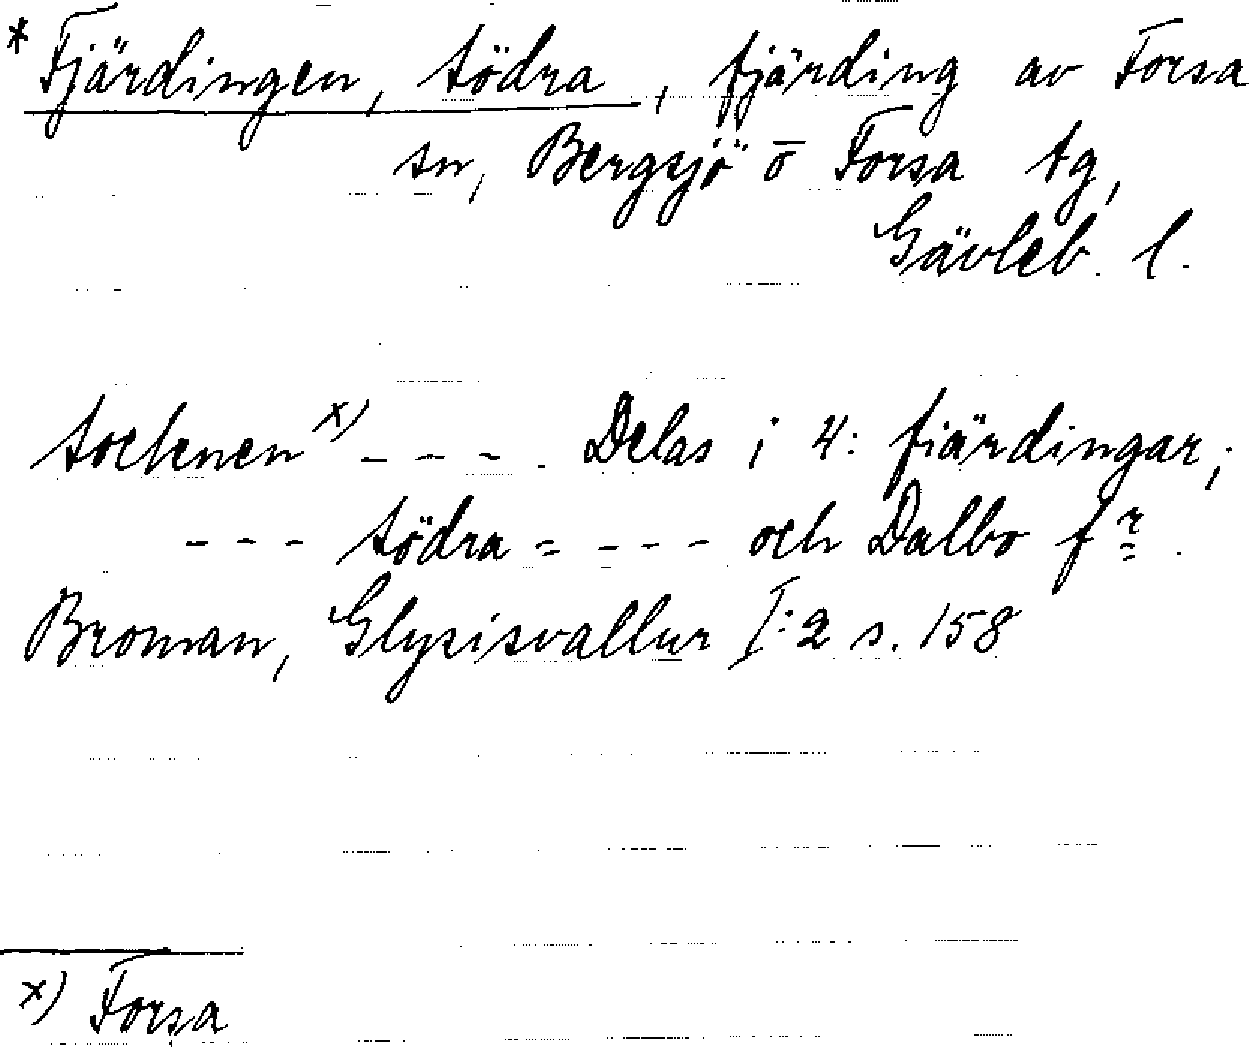 * Fjärdingen, södra, fjärding av Forsa
sn, Bergsjö o Forsa tg,
Gävleb. l.
Sochenen x) - - - . Delas i 4: fiärdingar;
- - - södra = - - - och Dalbo fr.
Broman, Glysisvallur I:2 s. 158
x) Forsa